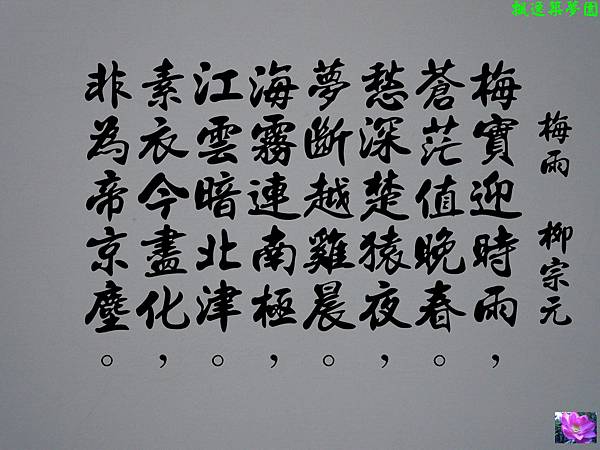 梅雨 柳宗元
梅實迎時雨，
蒼茫值晚春。
愁深楚猿夜，
夢斷越雞晨。
海霧連南極，
江雲暗北津。
素衣今盡化，
非為帝京塵。
築夢園